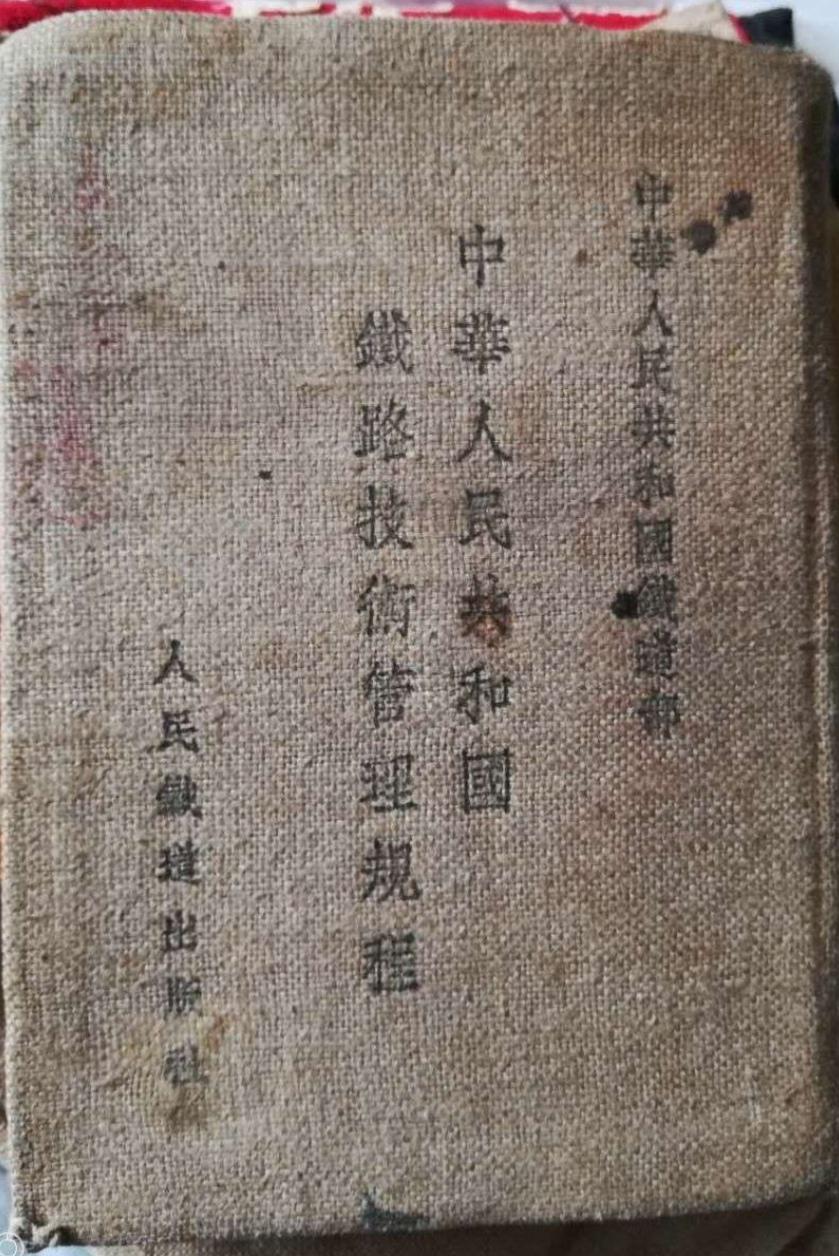 中華人民共和國鐵道部
中華人民共和國
鐵路技術管理規程
人民鐵道出版社